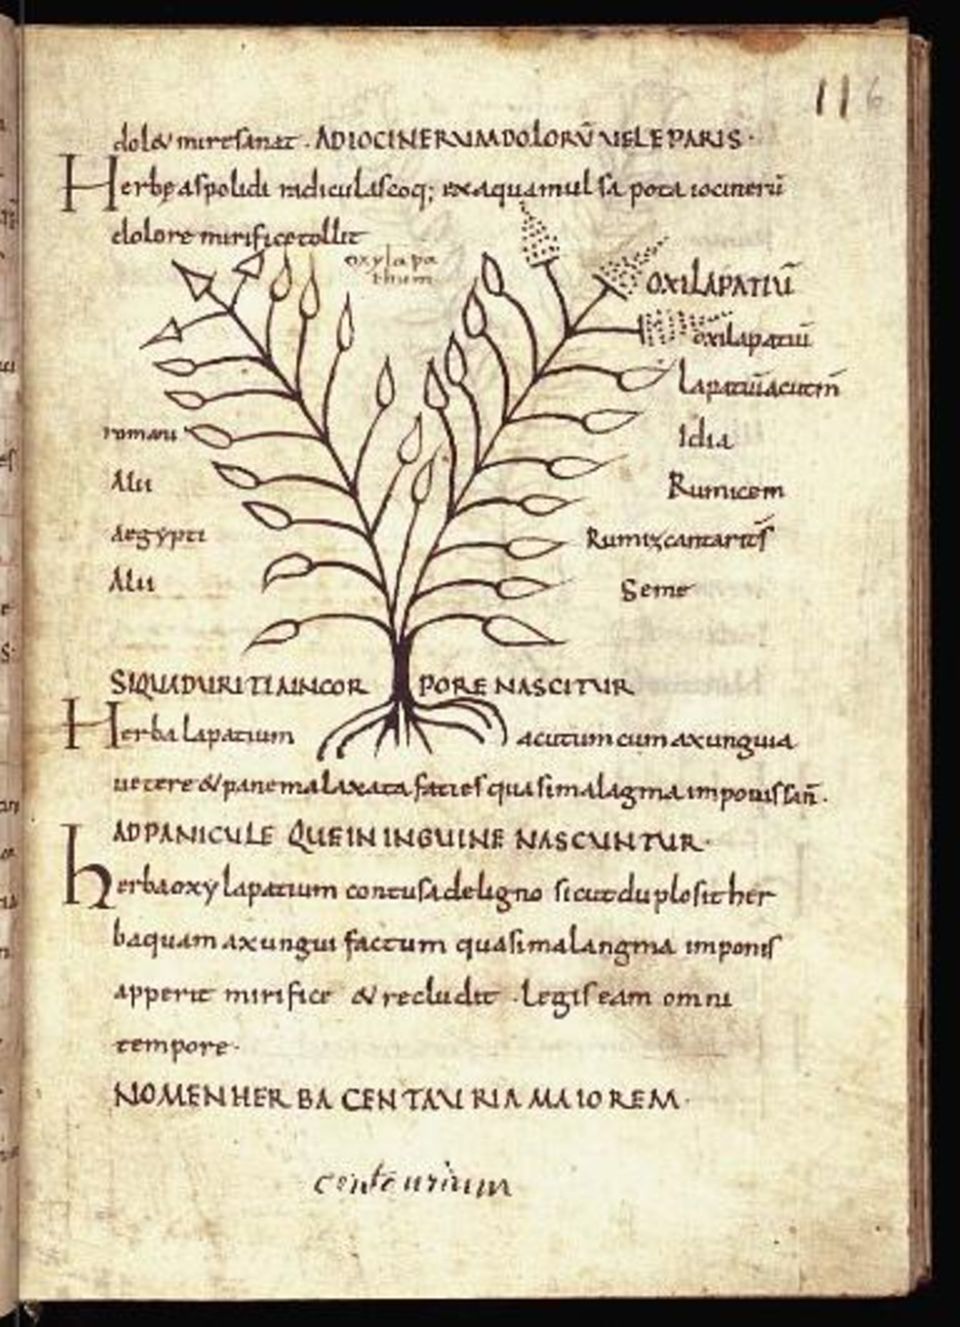 116
dolet mire sanat · AD IOCINERUM DOLORŪ VEL EPARIS ·
Herbę aspolidi radiculas coq; ex aqua mulsa pota iocinerū
dolore mirifice tollit
oxylapa
thum
OXILAPATIŪ
oxilapatiū
Lapatiū acutm̄
romani Idia
Alii Rumicem
aegypti
Alii Seme
SI QUA DURITIA IN COR PORE NASCITUR
Herba lapatium acutum cum axungia
uetere & pane malaxata facies quasi malagma imponis san̄ ·
AD PANICULE QUE IN INGUINE NASCUNTUR ·
herba oxylapatium contusa de ligno sicut duplo sit her
ba quam axungui factum quasi malangma imponis
apperit mirifice & recludit · Legis eam omni
tempore ·
NOMEN HERBA CENTAURIA MAIOREM ·